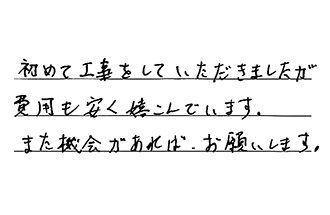 初めて工事をしていただきましたが
費用も安く嬉こんでいます。
また機会があれば、お願いします。